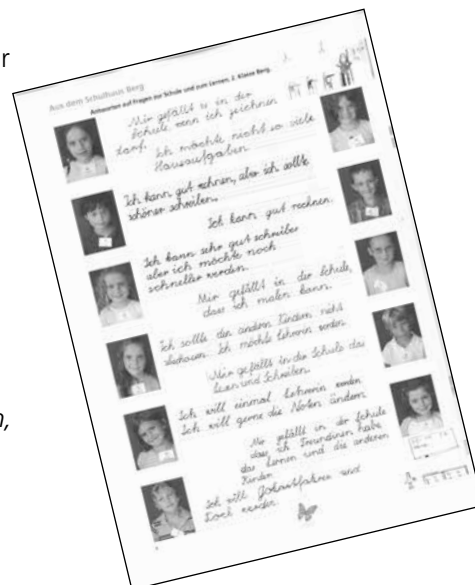 r
Aus dem Schulhaus Berg
Antworten auf Fragen zur Schule und zum Lernen, 2. Klasse Berg.
Mir gefällt es in der
Schule, wenn ich zeichnen
darf.
Ich möchte nicht so viele
Hausaufgaben
Ich kann gut rechnen, aber ich sollte
schöner schreiben.
Ich kann gut rechnen.
Ich kann sehr gut schreiben
aber ich möchte noch
schneller werden.
Mir gefällt in der Schule,
dass ich malen kann.
Ich sollte den andern Kindern nicht
Ich möchte lehrerin werden
Mir gefällt in die Schule das
lesen und Schreiben.
Ich will einmal Lehrerin werden
Ich will gerne die Noten ändern
n,
Mir gefällt in der Schule
dass ich Freundinnen habe
das Lernen und die anderen
Kinder
Ich will und
Koch werden